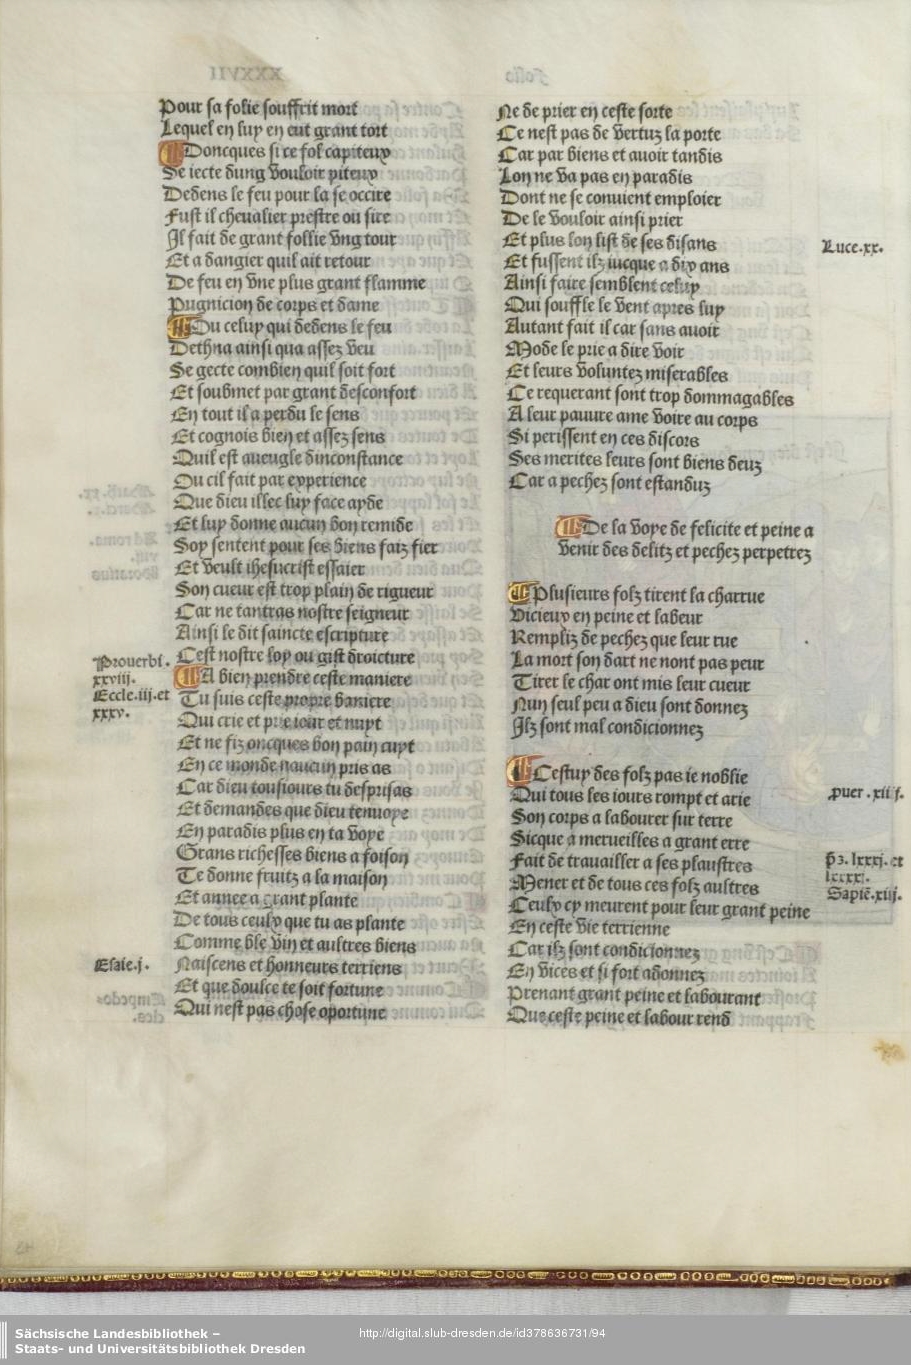 Pour sa folie souffrit mort
Lequel en luy en eut grant tort
Doncques si ce fol capiteux
Se iecte dung vouloir piteux
Dedens le feu pour la se occire
Fust il chevalier prestre ou sire
Il fait de grant follie vng tour
Et a dangier quil ait retour
De feu en vne plus grant flamme
Pugnicion de corps et dame
Du celuy qui dedens le feu
Dethna ainsi qua assez veu
Se gecte combien quil soit fort
Et soubmet par grant desconfort
En tout il a perdu le sens
Et cognois bien et assez sens
Quil est aueugle dinconstance
Ou cil fait par experience
Que dieu illec luy face ayde
Et luy donne aucun bon remide
Soy sentent pour ses biens faiz fier
Et veult ihesucrist essaier
Son cueur est trop plain de rigueur
Car ne tantras nostre seigneur
Ainsi le dit saincte escripture
Cest nostre loy ou gist droicture
A bien prendre ceste maniere
Tu suis ceste propre baniere
Qui crie et prie iour et nuyt
Et ne fiz oncques bon pain cuyt
En ce monde naucun pris as
Car dieu tousiours tu desprisas
Et demandes que dieu tenuoye
En paradis plus en ta voye
Grans richesses biens a foison
Te donne fruitz a la maison
Et annee a grant plante
De tous ceulx que tu as plante
Comme ble vin et aultres biens
Naiscens et honneurs terriens
Et que doulce te soit fortune
Qui nest pas chose oportune
Prouerbi.
xxviij.
Eccle.iij.et
xxxv.
Esaie.j.
Ne de prier en ceste sorte
Ce nest pas de vertuz la porte
Car par biens et auoir tandis
Lon ne va pas en paradis
Dont ne se conuient emploier
De le vouloir ainsi prier
Et plus lon list de ses disans
Et fussent ilz iucque a dix ans
Ainsi faire semblent celuy
Qui souffle le vent apres luy
Autant fait il car sans auoir
Mode le prie a dire voir
Et leurs voluntez miserables
Ce requerant sont trop dommagables
A leur pauure ame voire au corps
Si perissent en ces discors
Ses merites leurs sont biens deuz
Car a pechez sont estanduz
De la voye de felicite et peine a
venir des delitz et pechez perpetrez
Plusieurs folz tirent la charrue
Vicieux en peine et labeur
Rempliz de pechez que leur rue
La mort son dart ne nont pas peur
Tirer le char ont mis leur cueur
Nun seul peu a dieu sont donnez
Ilz sont mal condicionnez
Cestuy des folz pas ie noblie
Qui tous les iours rompt et arie
Son corps a labourer sur terre
Sicque a merueilles a grant erre
Fait de trauailler a ses plaustres
Mener et de tous ces folz aultres
Ceulx cy meurent pour leur grant peine
En ceste vie terrienne
Car ilz sont condicionnez
En vices et si fort adonnez
Prenant grant peine et labourant
Que ceste peine et labour rend
Luce.xx.
puer.xiij.
ps. lxxxj.et
Sapiē.xiij.
Sächsische Landesbibliothek –
Staats- und Universitätsbibliothek Dresden
http://digital.slub-dresden.de/id378636731/94